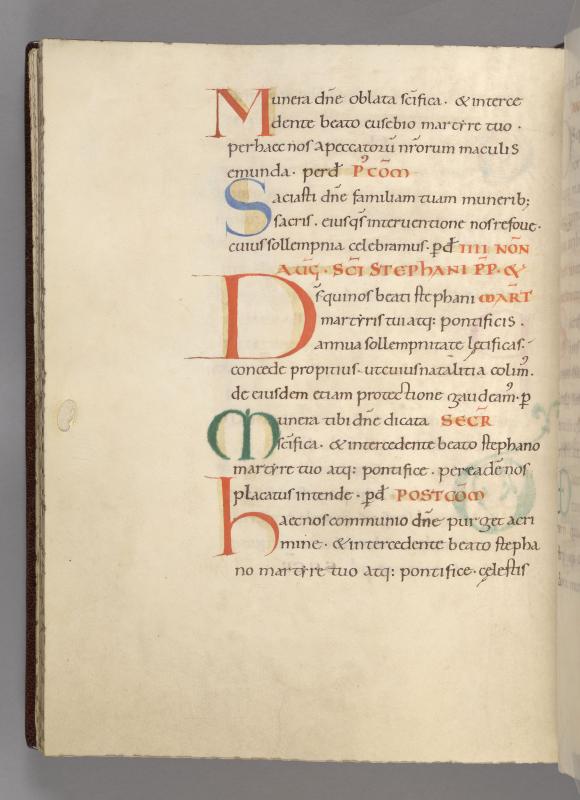 Munera dñe oblata sc̄ifica · & interce
dente beato eusebio martyre tuo ·
per haec nos a peccatorū nr̄orum maculis
emunda · per dn̄ P̉ CŌM
Saciasti dñe familiam tuam munerib;
sacris · eiusq̄s interuentione nos refoue ·
cuius sollempnia celebramus · p̄ dn̄ IIII NŌN
AUḠ · SC̄I STEPHANI P̄P · &
Dsquinos beati stephani MAR̄T
martyris tui atq: pontificis ·
annua sollempnitate lętificas ·
concede propitius · ut cuius natalitia colim̉ ·
de eiusdem etiam protectione gaudeam̉ · p̄
Munera tibi dñe dicata SECR̄
sc̄ifica · & intercedente beato stephano
martyre tuo atq: pontifice · per eadē nos
placatus intende · p̄ dn̄ POSTCOM
haec nos communio dñe purget acri
mine · & intercedente beato stepha
no martyre tuo atq: pontifice · cęlestis